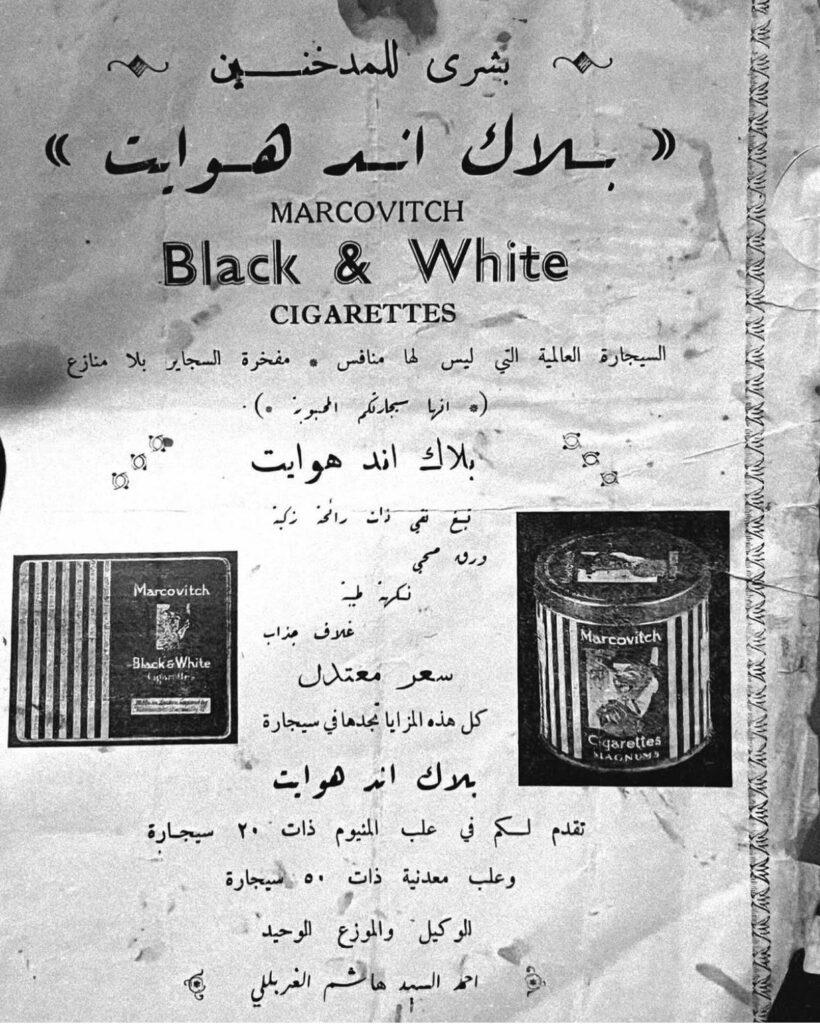 بشرى للمدخنين
« بلاك اند هوايت »
MARCOVITCH
Black & White
CIGARETTES
السيجارة العالمية التي ليس لها منافس * مفخرة السجاير بلا منازع
(* انها سيجارتكم المحبوبة *)
بلاك اند هوايت
تبغ نقي ذات رائحة زكية
ورق صحي
نكهة طيبة
غلاف جذاب
سعر معتدل
كل هذه المزايا تجدها في سيجارة
بلاك اند هوايت
Marcovitch
Black & White
Cigarettes
Marcovitch
Cigarettes
MAGNUMS
تقدم لكم في علب المنيوم ذات ٢٠ سيجارة
وعلب معدنية ذات ٥٠ سيجارة
الوكيل والموزع الوحيد
احمد السيد هاشم الغربللي